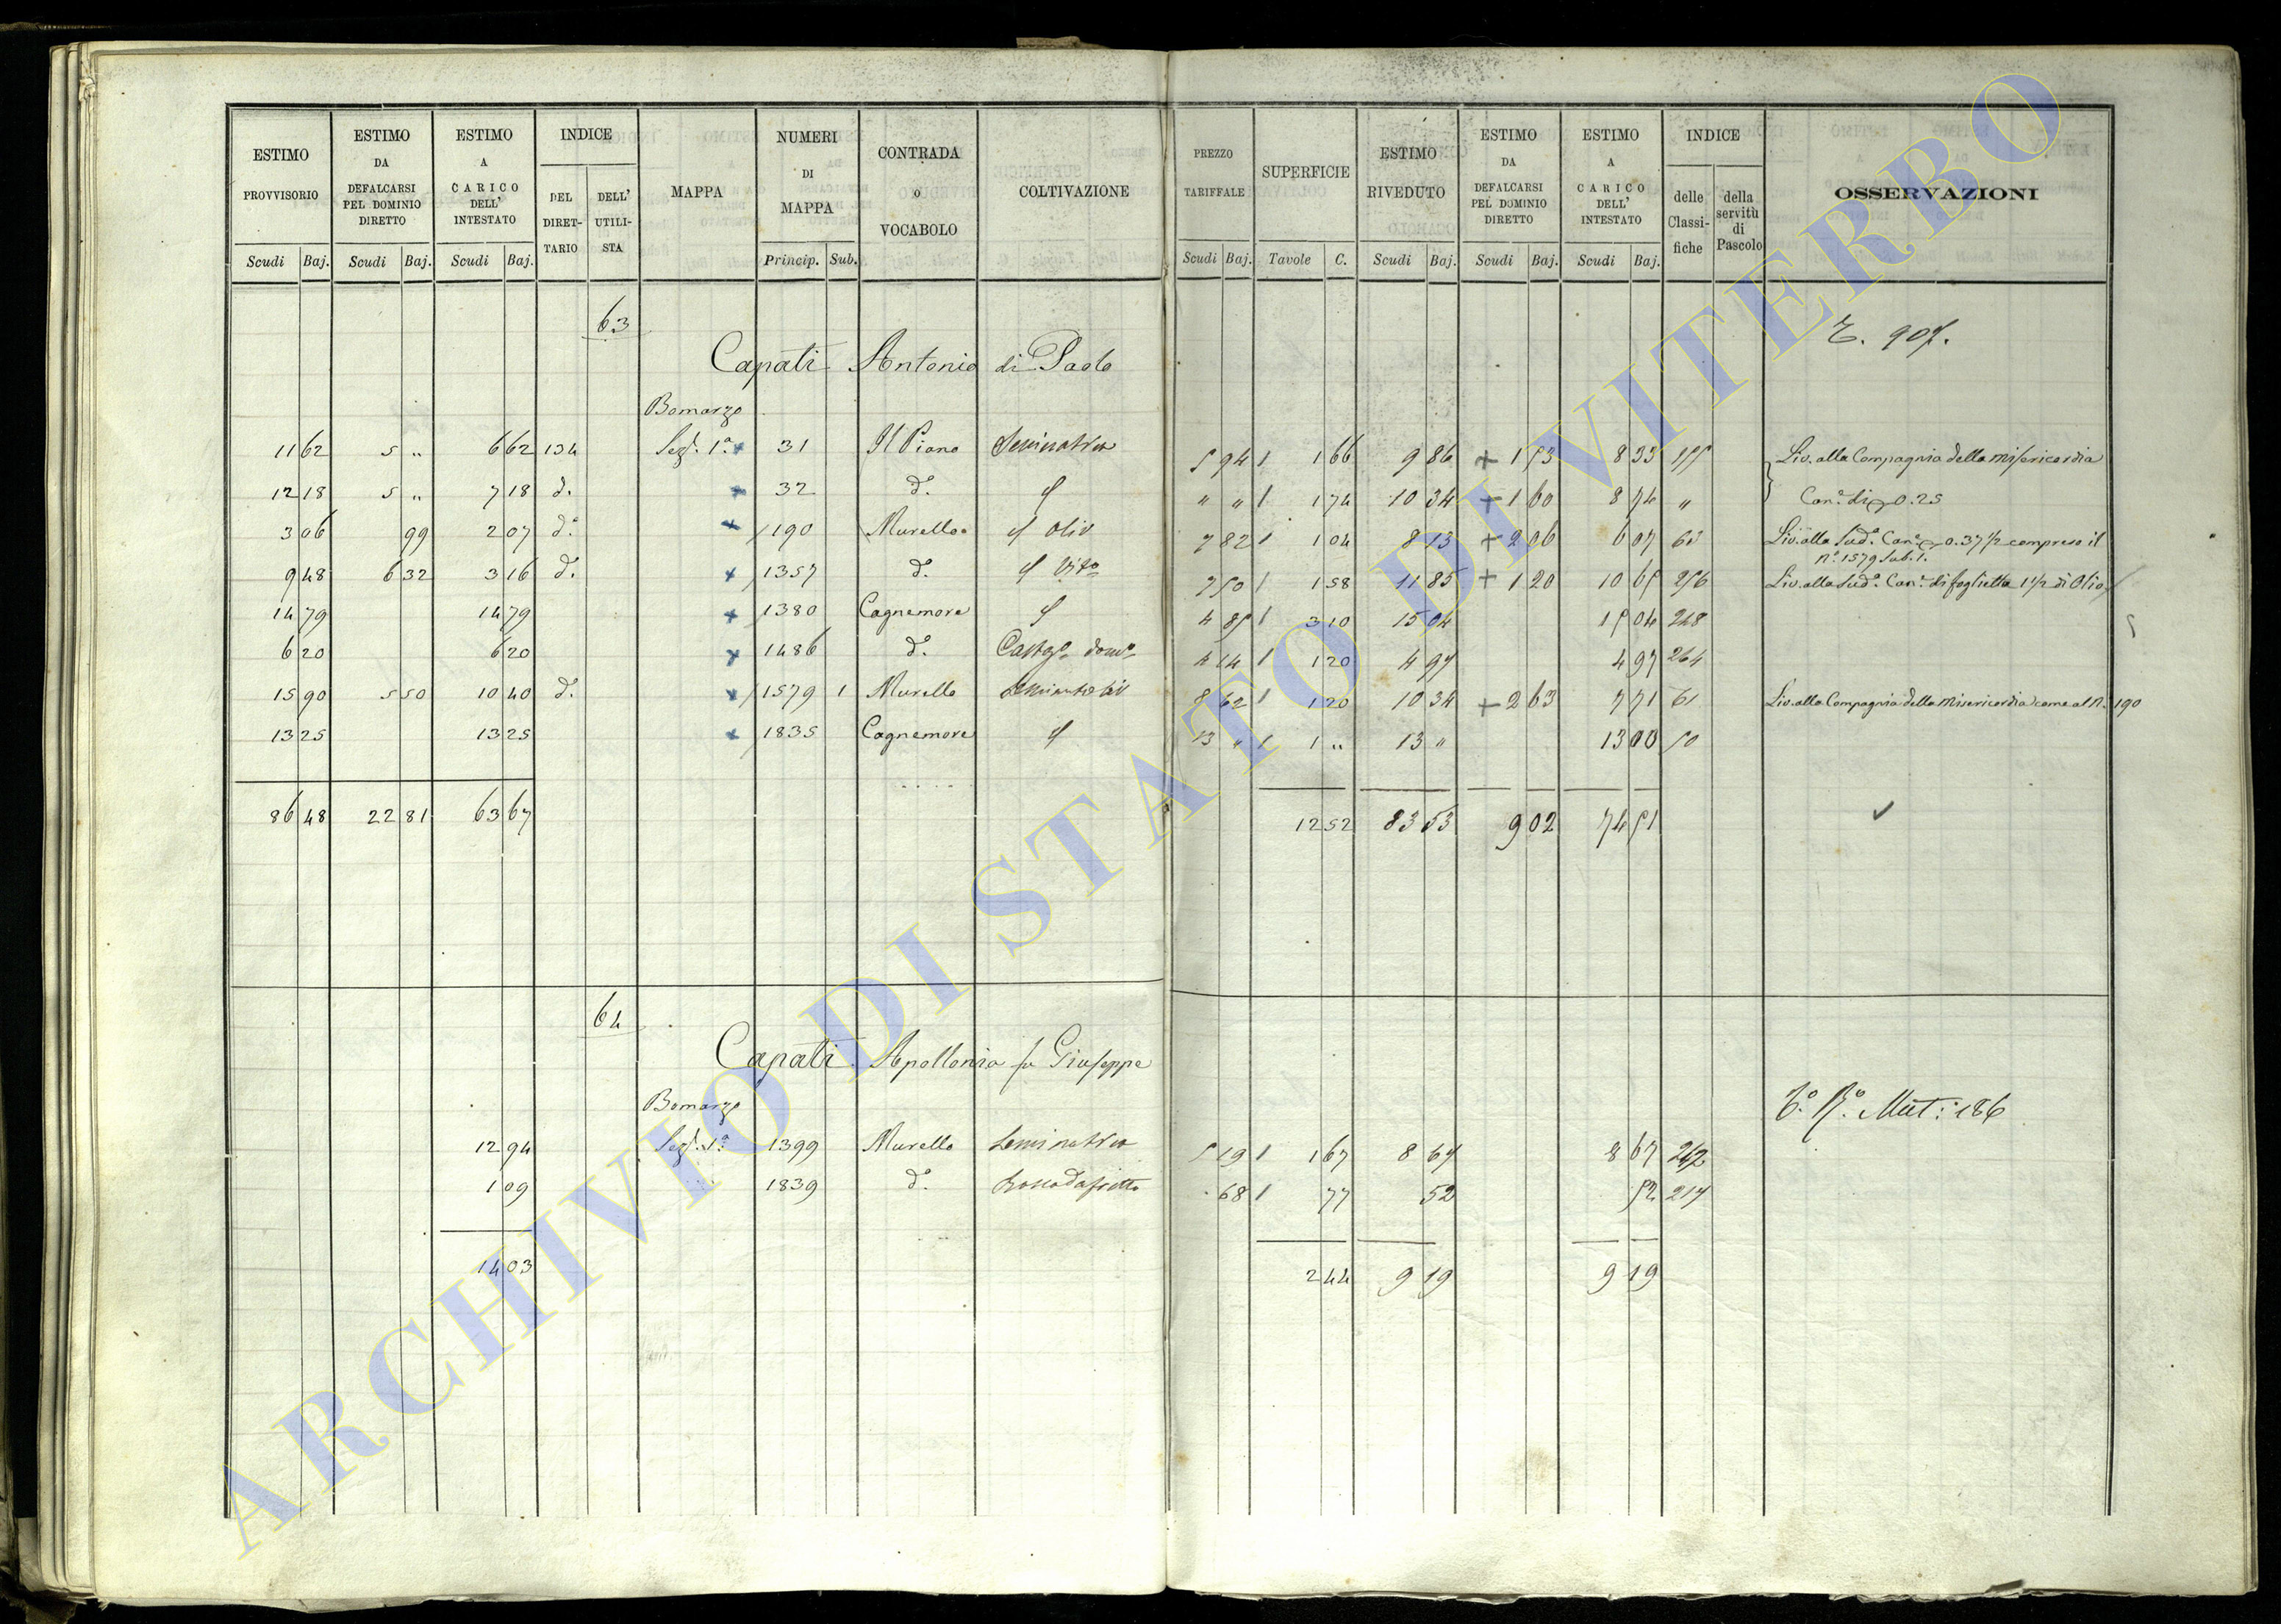 ESTIMO PROVVISORIO | ESTIMO DA DEFALCARSI PEL DOMINIO DIRETTO | ESTIMO A CARICO DELL' INTESTATO | INDICE | MAPPA | NUMERI DI MAPPA | CONTRADA o VOCABOLO | COLTIVAZIONE | PREZZO TARIFFALE | SUPERFICIE | ESTIMO RIVEDUTO | ESTIMO DA DEFALCARSI PEL DOMINIO DIRETTO | ESTIMO A CARICO DELL' INTESTATO | INDICE | OSSERVAZIONI
DEL DIRETTARIO | DELL' UTILISTA | delle Classifiche | della servitù di Pascolo
Scudi Baj. | Scudi Baj. | Scudi Baj. | Princip. Sub. | Scudi Baj. | Tavole C. | Scudi Baj. | Scudi Baj. | Scudi Baj.
63
Capati Antonio di Paolo
Bomarzo
11 62 | 5 " | 6 62 | 134 | Sez. 1a + | 31 | Il Piano | Seminativo | 5 94 | 1 66 | 9 86 | + 1 53 | 8 33 | 155 | Liv. alla Compagnia della Misericordia
12 18 | 5 " | 7 18 | d. | + | 32 | d. | " " | 1 74 | 10 34 | + 1 60 | 8 74 | " | Cane di 0.25
3 06 | 99 | 2 07 | do | + | 190 | Murella | Oliv | 7 82 | 1 04 | 8 13 | + 2 06 | 6 07 | 63 | Liv. alla Sud. Cane 0.37 1/2 compreso il
no 1579 Sub. 1.
9 48 | 6 32 | 3 16 | d. | + | 1357 | d. | Vito | 7 50 | 1 58 | 11 85 | + 1 20 | 10 65 | 256 | Liv. alla Sud. Cane di foglietta 1 1/2 di Olio
14 79 | 14 79 | + | 1380 | Cagnemora | 4 85 | 3 10 | 15 04 | 15 04 | 248
6 20 | 6 20 | + | 1486 | d. | Castgo domo | 4 14 | 1 20 | 4 97 | 4 97 | 264
15 90 | 5 50 | 10 40 | d. | + | 1579 1 | Murella | 8 62 | 1 20 | 10 34 | + 2 63 | 7 71 | 61 | Liv. alla Compagnia della Misericordia come al N. 190
13 25 | 13 25 | + | 1835 | Cagnemora | 13 " | 1 " | 13 " | 13 00 | 50
86 48 | 22 81 | 63 67 | 12 52 | 83 53 | 9 02 | 74 51
64
Capati Apollonia fu Giuseppe
Bomarzo
Mut: 186
12 94 | Sez. 1a | 1399 | Murella | Seminativo | 5 19 | 1 67 | 8 67 | 8 67 | 242
1 09 | 1839 | d. | 68 | 77 | 52 | 52 | 217
14 03 | 2 44 | 9 19 | 9 19
ARCHIVIO DI STATO DI VITERBO